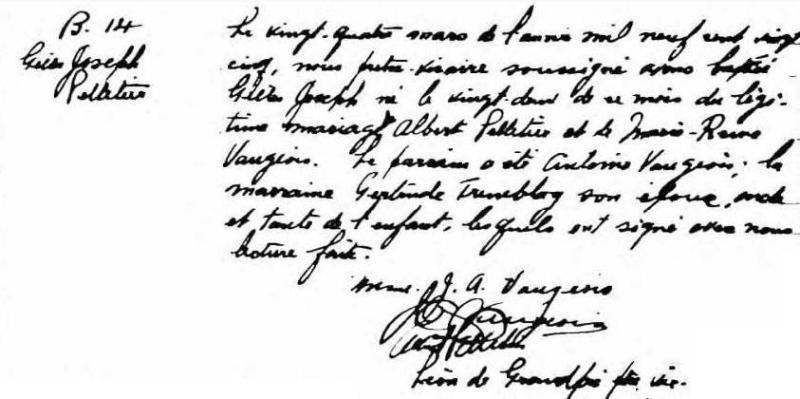 B. 14
Gilles Joseph
Pelletier
Le vingt-quatre mars de l'année mil neuf cent vingt
cinq, nous prêtre-vicaire soussigné avons baptisé
Gilles Joseph né le vingt-deux de ce mois du légi-
time mariage Albert Pelletier et de Marie-Reine
Vaugeois. Le parrain a été Antoine Vaugeois; la
marraine Gertrude son épouse, oncle
et tante de l'enfant, lesquels ont signé avec nous
lecture faite.
Mme. J. A. Vaugeois
Vaugeois
Albert Pelletier
Léon de Grandpré ptre vic.